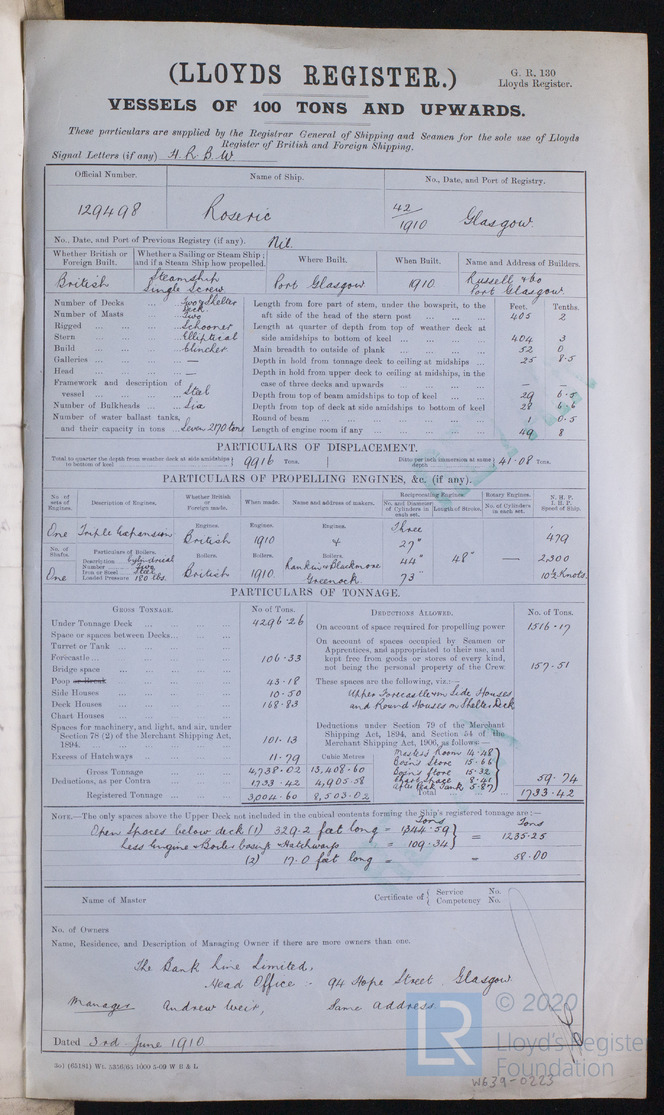 (LLOYDS REGISTER.)
G. R. 130
Lloyds Register.
VESSELS OF 100 TONS AND UPWARDS.
These particulars are supplied by the Registrar General of Shipping and Seamen for the sole use of Lloyds
Register of British and Foreign Shipping.
Signal Letters (if any) H. R. B. W
Official Number. Name of Ship. No., Date, and Port of Registry.
129498 Roseric 42/1910 Glasgow
No., Date, and Port of Previous Registry (if any). Nil.
Whether British or Foreign Built. Whether a Sailing or Steam Ship; and if a Steam Ship how propelled. Where Built. When Built. Name and Address of Builders.
British Steamship Single Screw Port Glasgow 1910 Russell & Co Port Glasgow
Number of Decks ... Two & Shelter Deck
Number of Masts ... Two
Rigged ... Schooner
Stern ... Elliptical
Build ... Clincher
Galleries ... —
Head ... —
Framework and description of vessel ... Steel
Number of Bulkheads ... Six
Number of water ballast tanks, and their capacity in tons ... Seven 2170 tons
Feet. Tenths.
Length from fore part of stem, under the bowsprit, to the aft side of the head of the stern post ... 405 2
Length at quarter of depth from top of weather deck at side amidships to bottom of keel ... 404 3
Main breadth to outside of plank ... 52 0
Depth in hold from tonnage deck to ceiling at midships ... 25 8·5
Depth in hold from upper deck to ceiling at midships, in the case of three decks and upwards ... — —
Depth from top of beam amidships to top of keel ... 29 6·5
Depth from top of deck at side amidships to bottom of keel 28 6·6
Round of beam ... 1 0·5
Length of engine room if any ... 49 8
PARTICULARS OF DISPLACEMENT.
Total to quarter the depth from weather deck at side amidships to bottom of keel } 9916 Tons. Ditto per inch immersion at same depth } 41·08 Tons.
PARTICULARS OF PROPELLING ENGINES, &c. (if any).
No. of sets of Engines. Description of Engines. Whether British or Foreign made. When made. Name and address of makers. Reciprocating Engines. No. and Diameter of Cylinders in each set. Length of Stroke. Rotary Engines. No. of Cylinders in each set. N. H. P. I. H. P. Speed of Ship.
One Triple Expansion Engines. British Engines. 1910 Engines. Three 27" 479
No. of Shafts. Particulars of Boilers. Boilers. Boilers. Boilers.
Description ... Cylindrical
Number ... Two
Iron or Steel ... Steel
Loaded Pressure 180 lbs.
One British 1910 Rankin & Blackmore Greenock 44" 73" 48" — 2,300 10½ Knots.
PARTICULARS OF TONNAGE.
GROSS TONNAGE. No of Tons. DEDUCTIONS ALLOWED. No. of Tons.
Under Tonnage Deck ... 4296·26
Space or spaces between Decks ...
Turret or Tank ...
Forecastle ... 106·33
Bridge space ...
Poop or Break ... 43·18
Side Houses ... 10·50
Deck Houses ... 168·83
Chart Houses ...
Spaces for machinery, and light, and air, under Section 78 (2) of the Merchant Shipping Act, 1894. 101·13
Excess of Hatchways ... 11·79 Cubic Metres
Gross Tonnage ... 4,738·02 13,408·60
Deductions, as per Contra ... 1733·42 4,905·58
Registered Tonnage ... 3,004·60 8,503·02
On account of space required for propelling power 1516·17
On account of spaces occupied by Seamen or Apprentices, and appropriated to their use, and kept free from goods or stores of every kind, not being the personal property of the Crew 157·51
These spaces are the following, viz.:—
Upper Forecastle & in Side Houses
and Round Houses on Shelter Deck
Deductions under Section 79 of the Merchant Shipping Act, 1894, and Section 54 of the Merchant Shipping Act, 1906, as follows—
Master's Room 14·48
Bosn's Store 15·66
15·32
Chart Space 8·41
After Peak Tank 5·87
59·74
Total ... 1733·42
NOTE.—The only spaces above the Upper Deck not included in the cubical contents forming the Ship's registered tonnage are:—
Tons Tons
Open Spaces below deck (1) 329.2 feet long = 1344·59 } = 1235·25
Less Engine & Boiler casing & Hatchways = 109·34
(2) 17.0 feet long = = 58·00
Name of Master Certificate of { Service No. Competency No.
No. of Owners
Name, Residence, and Description of Managing Owner if there are more owners than one.
The Bank Line Limited,
Head Office :- 94 Hope Street Glasgow
Manager Andrew Weir, Same address
Dated 3rd June 1910
3o) (65181) Wt. 5356/65 1000 5-09 W B & L
LR
© 2020
Lloyd's Register
Foundation
W639-0223